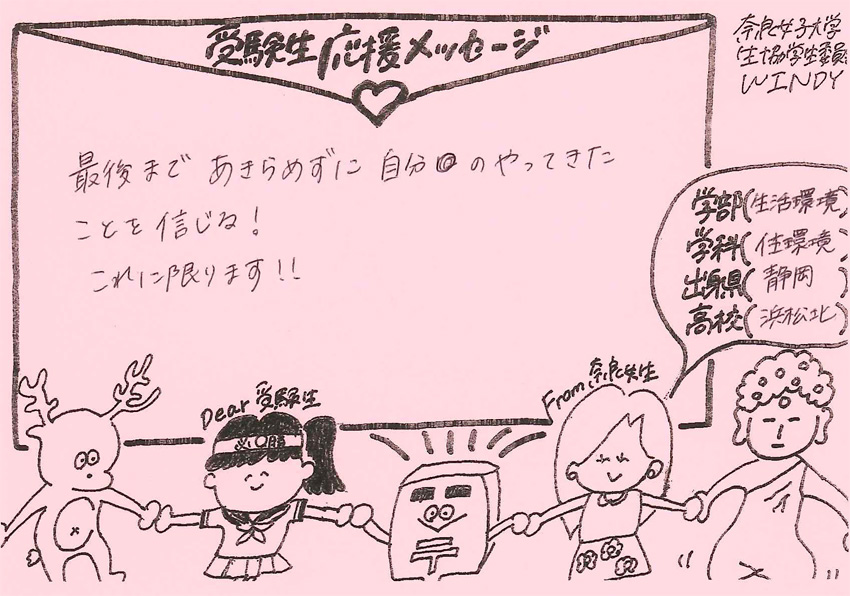 受験生応援メッセージ
奈良女子大学
生協学生委員
WINDY
最後まで あきらめずに 自分のやってきた
ことを信じる!
これに限ります!!
学部(生活環境)
学科(住環境)
出身県(静岡)
高校(浜松北)
Dear 受験生
From 奈良女生
必勝
〒